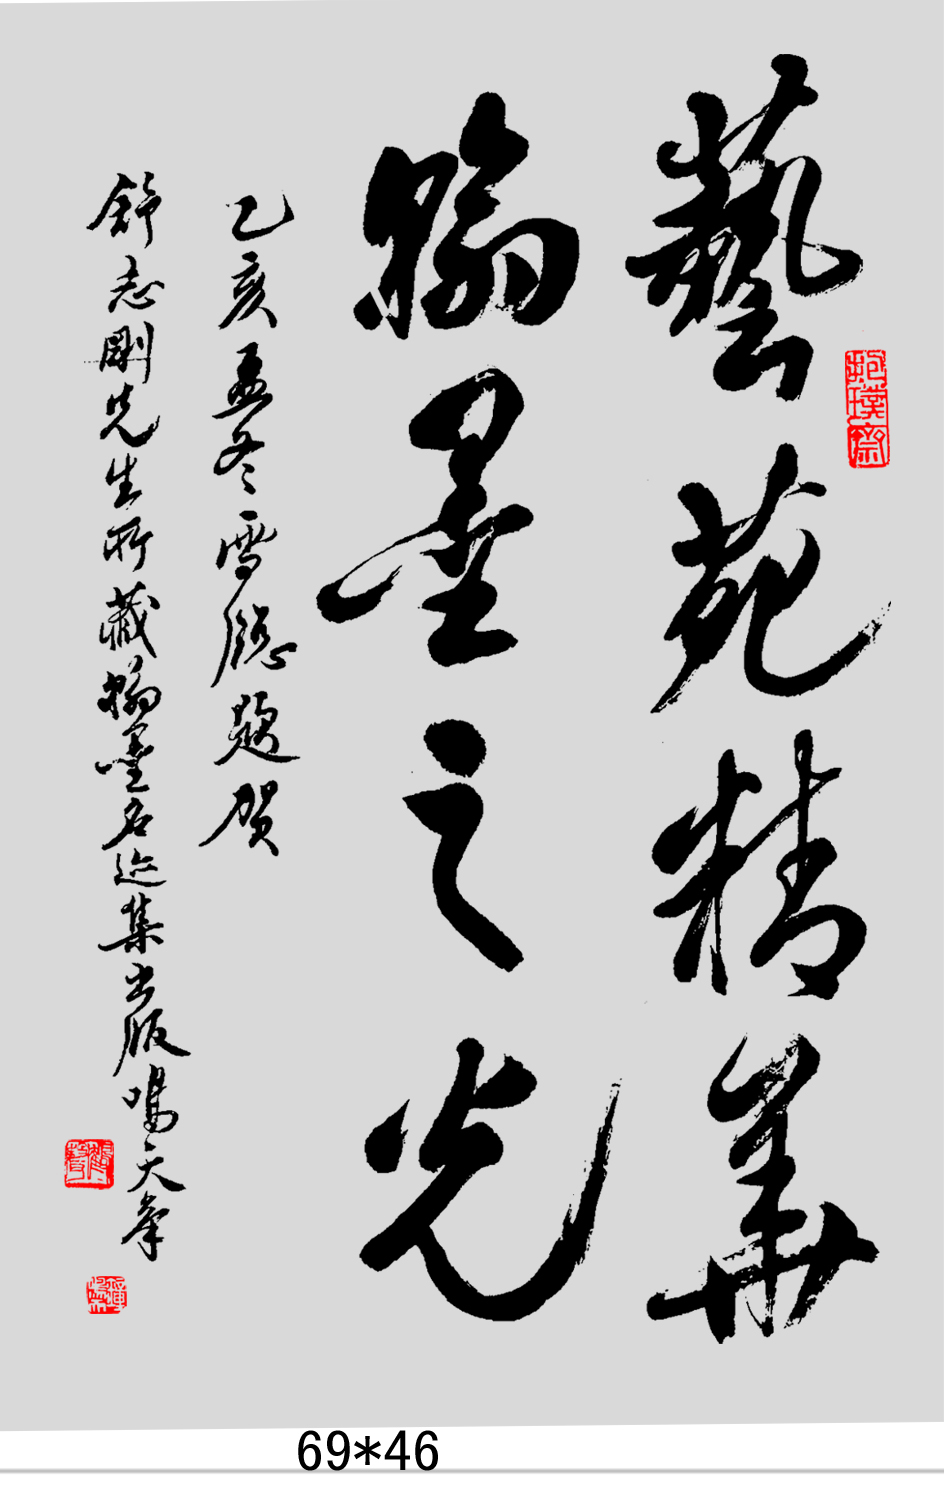 藝苑精華
翰墨之光
乙亥孟冬雪題賀
舒志剛先生所藏翰墨名迹集出版鳴天
抱璞齋
69*46